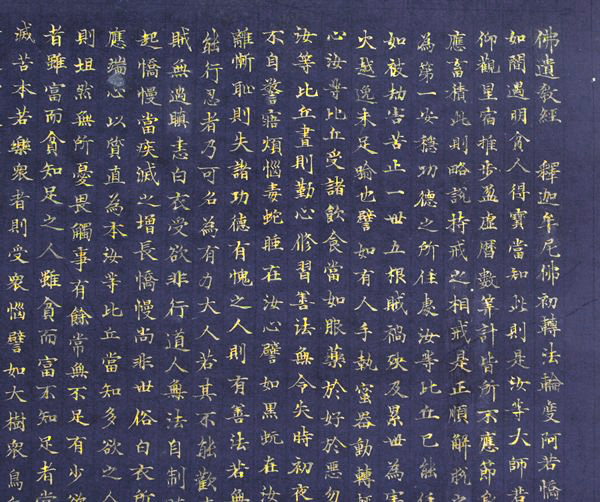 佛遺教經 釋迦牟尼佛初轉法輪度阿若憍
如闇遇明貧人得寶當知此則是汝等大師若
仰觀星宿推步盈虛曆數算計皆所不應節
應畜積此則略說持戒之相戒是正順解脫
為第一安穩功德之所住處汝等比丘已能住
如被劫害苦止一世五根賊禍殃及累世為害
火越逸未足喻也譬如有人手執蜜器動轉
心汝等比丘受諸飲食當如服藥於好於惡勿
汝等比丘晝則勤心修習善法無令失時初夜
不自警寤煩惱毒蛇睡在汝心譬如黑蚖在汝
離慚恥則失諸功德有愧之人則有善法若無
能行忍者乃可名為有力大人若其不能歡
賊無過瞋恚白衣受欲非行道人無法自制
起憍慢當疾滅之增長憍慢尚非世俗白衣所
應端心以質直為本汝等比丘當知多欲之人
則坦然無所憂畏觸事有餘常無不足有少欲
者雖富而貧知足之人雖貧而富不知足者常
滅苦本若樂眾者則受眾惱譬如大樹眾鳥